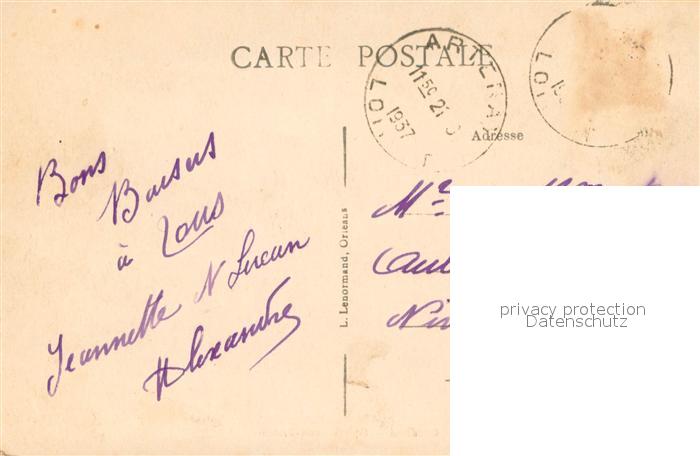 CARTE POSTALE
ARTENA
1150 21
1937
LOI
LOI
Adresse
Bons
Baisers
à Tous
Jeannette N Lucien
Alexandre
L. Lenormand, Orleans
privacy protection
Datenschutz